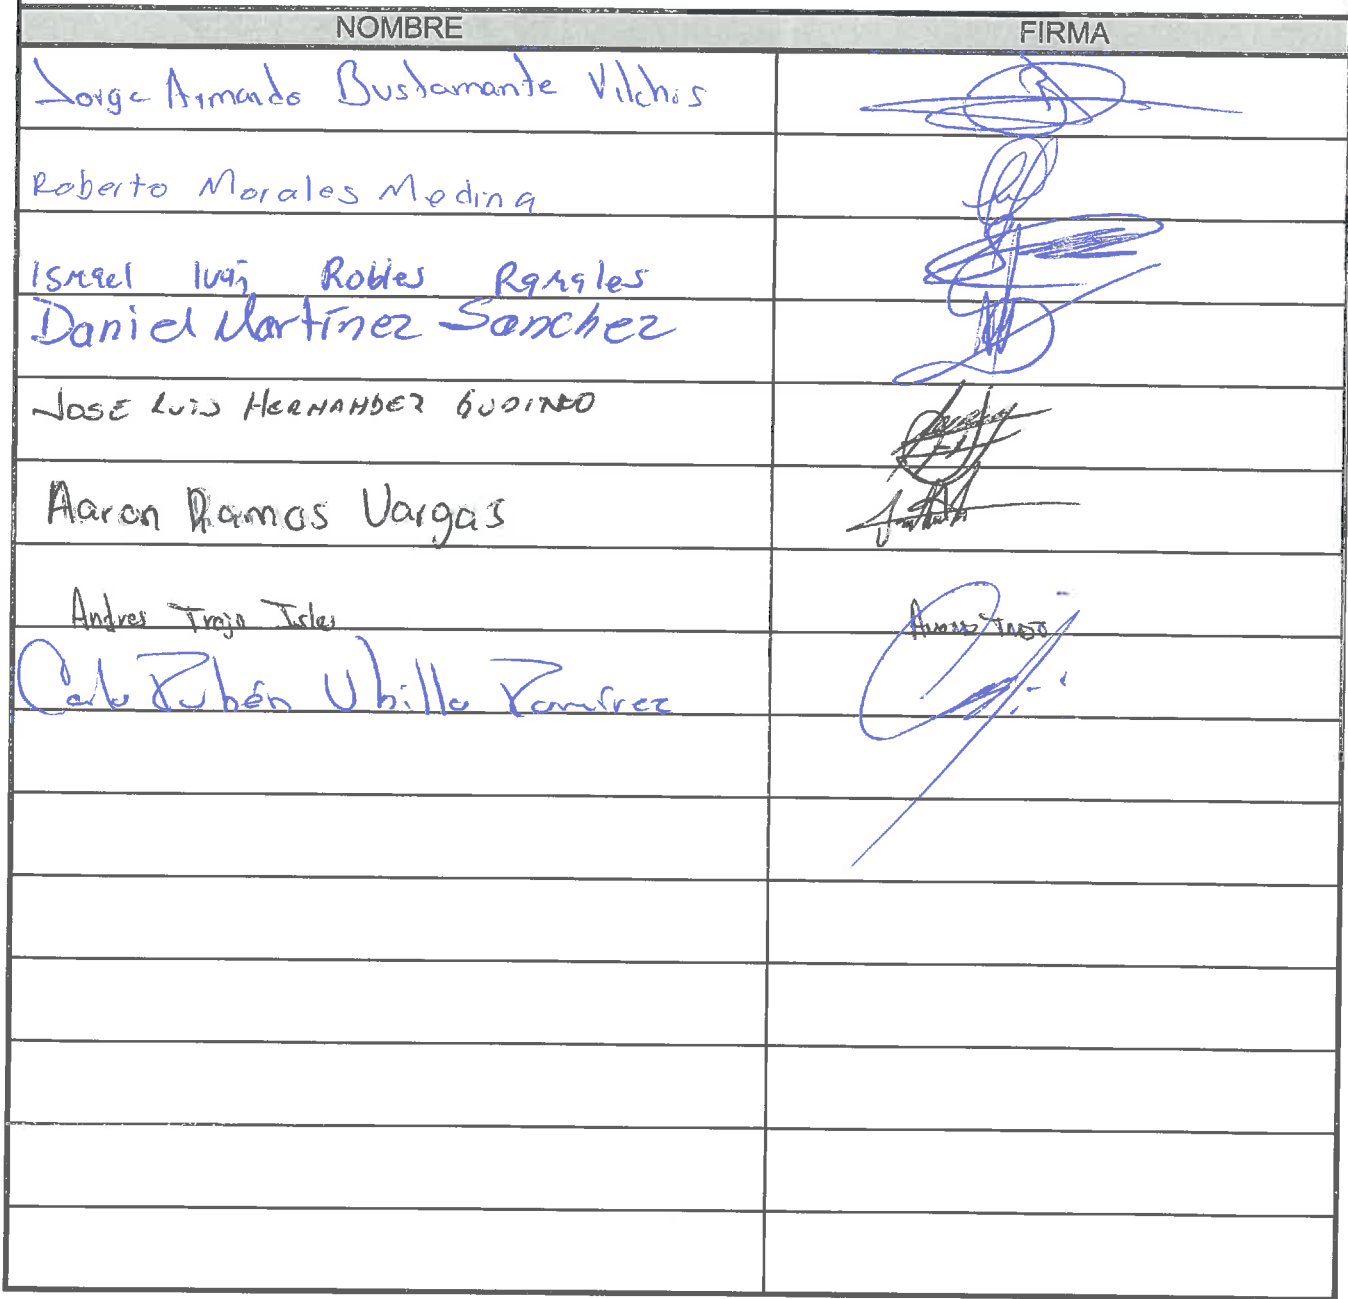 NOMBRE FIRMA
Jorge Armando Bustamante Vilchis
Roberto Morales Medina
Ismael Iván Robles Ramales
Daniel Martínez Sanchez
JOSE LUIS HERNANDEZ GUDINO
Aaron Ramos Vargas
Andres Trejo Islas
Rubén Ubilla Ramírez